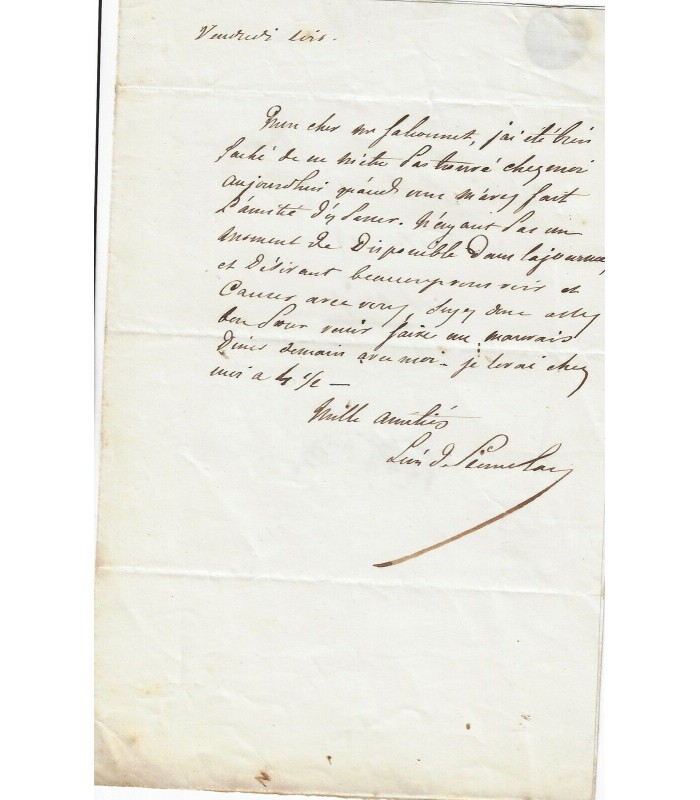 Vendredi soir.
Mon cher mr jaliounet, j'ai été bien
faché de ne m'etre pas trouvé chez moi
aujourdhui quand vous m'avez fait
l'amitié d'y passer. N'ayant pas un
moment de Disponible Dans la journée,
et Désirant beaucoup vous voir et
Causer avec vous, soyez donc assez
bon pour venir faire un mauvais
Diner demain avec moi - je serai chez
moi a 4 ½ -
Mille amitiés
Léon de